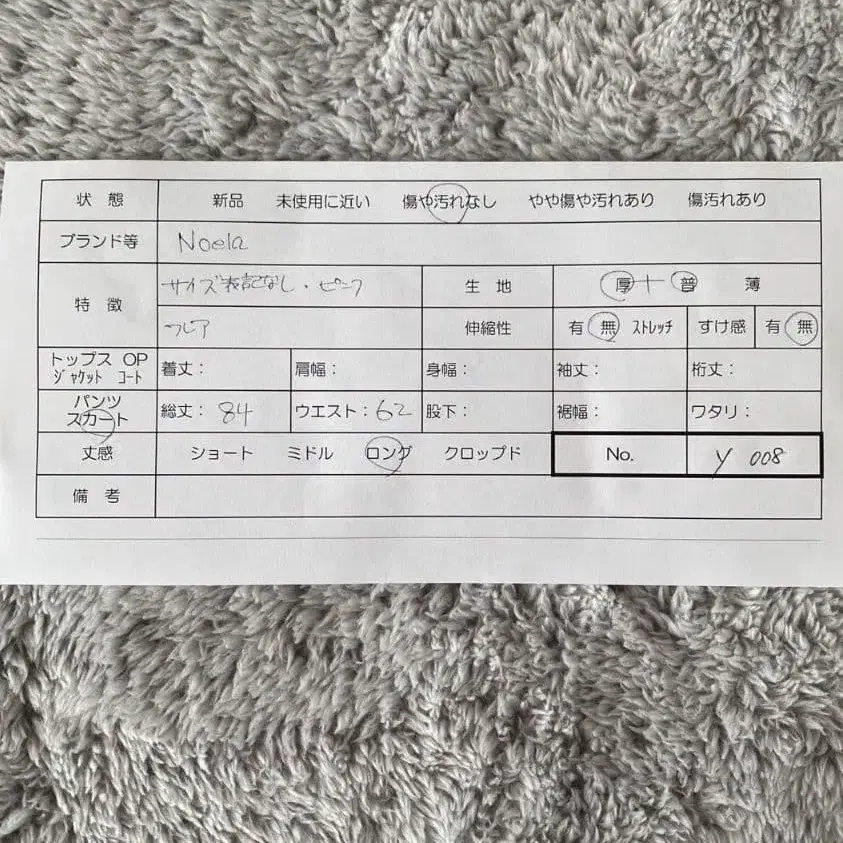 状 態 新品 未使用に近い 傷や汚れなし やや傷や汚れあり 傷汚れあり
ブランド等 Noela
特 徴 サイズ表記なし・ピンク 生 地 厚 + 普 薄
フレア 伸縮性 有 無 ストレッチ すけ感 有 無
トップス OP
ジャケット コート 着丈: 肩幅: 身幅: 袖丈: 桁丈:
パンツ
スカート 総丈: 84 ウエスト: 62 股下: 裾幅: ワタリ:
丈感 ショート ミドル ロング クロップド No. y 008
備 考